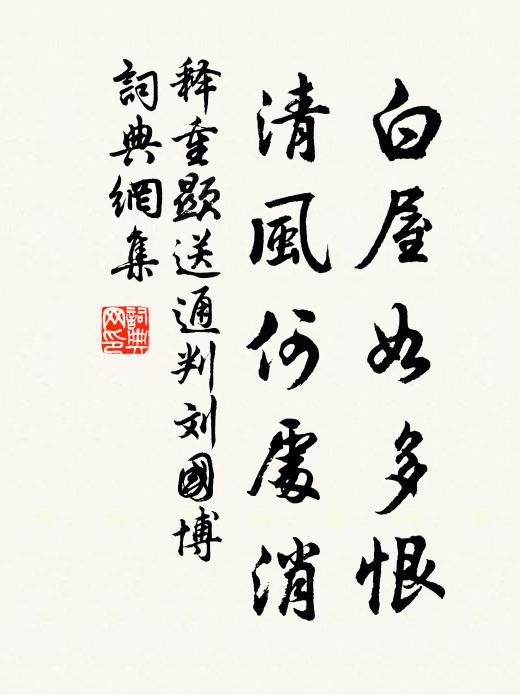 白屋如多恨
清風何處消
释重顯送通判刘國博
詞典網集
詞典网印